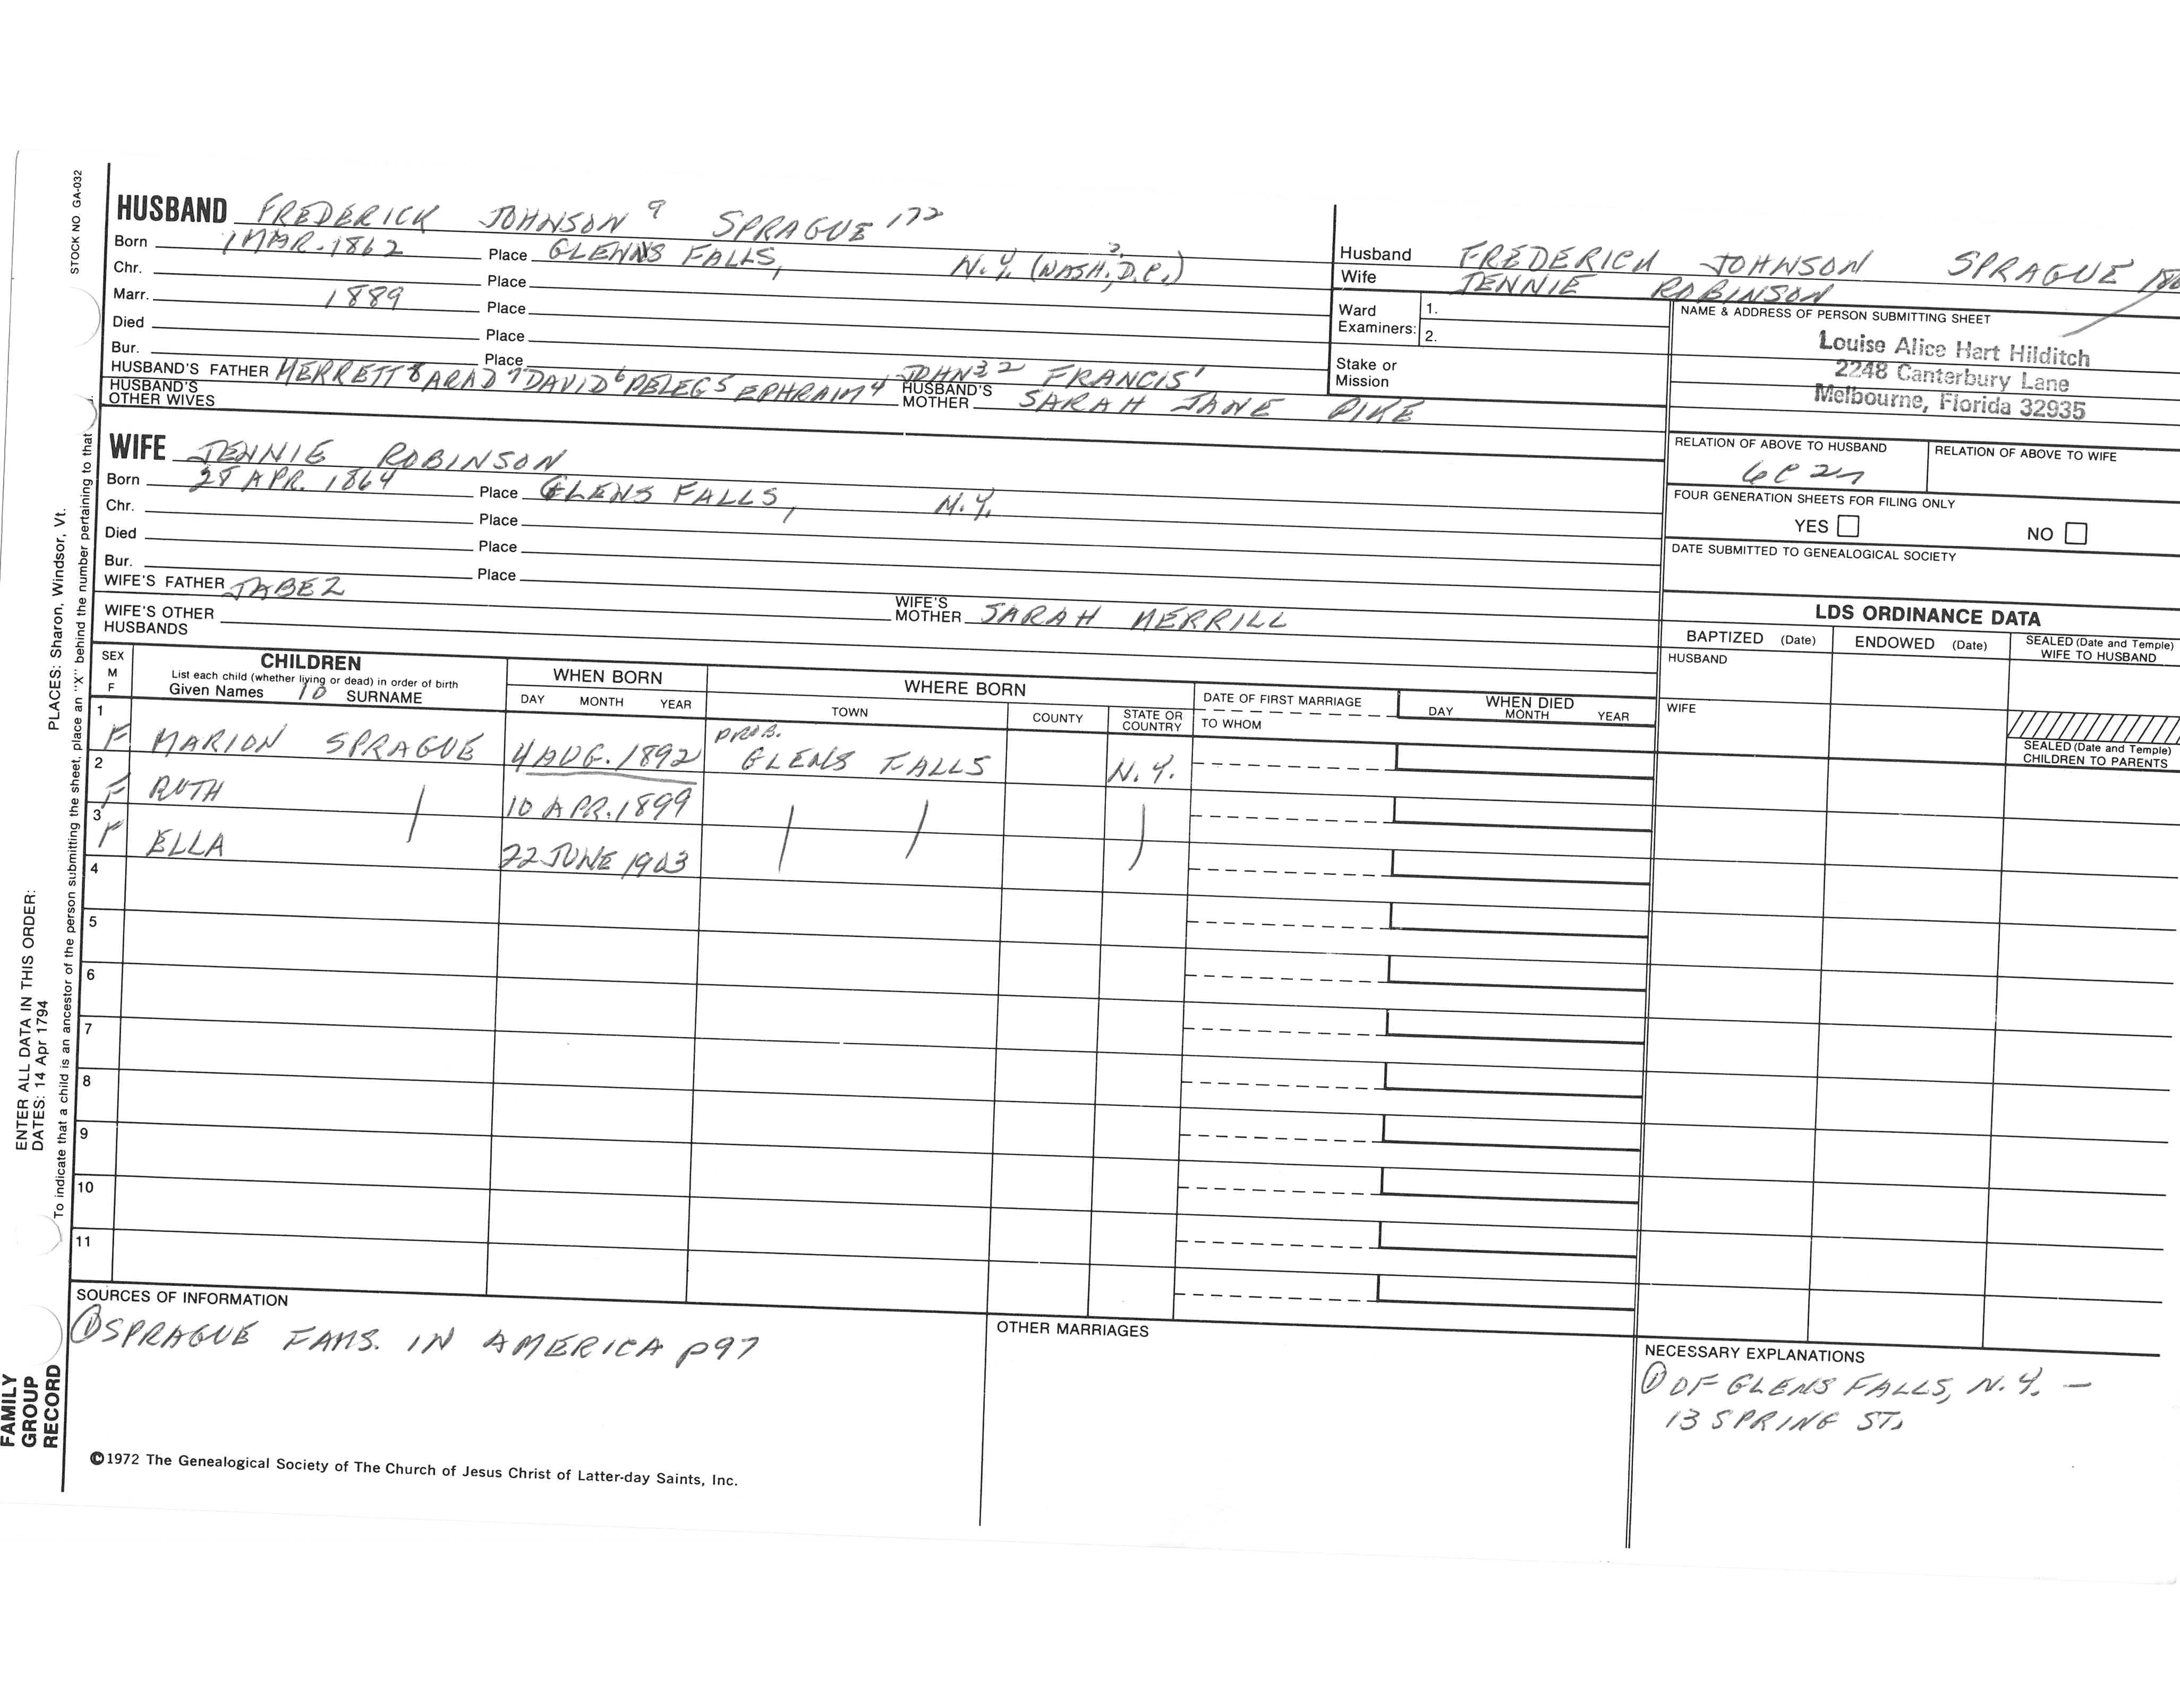 STOCK NO GA-032
HUSBAND FREDERICK JOHNSON 9 SPRAGUE 172
Born 1 MAR. 1862 Place GLENNS FALLS, N.Y. (WASH. D.C.) ?
Chr. Place
Marr. 1889 Place
Died Place
Bur. Place
HUSBAND'S FATHER MERRETT 8 ARAD 7 DAVID 6 PELEG 5 EPHRAIM 4 JOHN 3 2 FRANCIS 1
HUSBAND'S MOTHER SARAH JANE PIKE
HUSBAND'S OTHER WIVES
WIFE JENNIE ROBINSON
Born 28 APR. 1864 Place GLENS FALLS, N.Y.
Chr. Place
Died Place
Bur. Place
WIFE'S FATHER JABEZ
WIFE'S MOTHER SARAH MERRILL
WIFE'S OTHER HUSBANDS
Husband FREDERICK JOHNSON SPRAGUE
Wife JENNIE ROBINSON
Ward Examiners: 1.
2.
Stake or Mission
NAME & ADDRESS OF PERSON SUBMITTING SHEET
Louise Alice Hart Hilditch
2248 Canterbury Lane
Melbourne, Florida 32935
RELATION OF ABOVE TO HUSBAND RELATION OF ABOVE TO WIFE
6C2r
FOUR GENERATION SHEETS FOR FILING ONLY
YES NO
DATE SUBMITTED TO GENEALOGICAL SOCIETY
LDS ORDINANCE DATA
BAPTIZED (Date) ENDOWED (Date) SEALED (Date and Temple) WIFE TO HUSBAND
HUSBAND
WIFE
SEALED (Date and Temple) CHILDREN TO PARENTS
SEX M F
CHILDREN
List each child (whether living or dead) in order of birth
Given Names 10 SURNAME
WHEN BORN
DAY MONTH YEAR
WHERE BORN
TOWN COUNTY STATE OR COUNTRY
DATE OF FIRST MARRIAGE
TO WHOM
WHEN DIED
DAY MONTH YEAR
1 F MARION SPRAGUE 4 AUG. 1892 PROB. GLENS FALLS N.Y.
2 F RUTH 10 APR. 1899
3 F ELLA 22 JUNE 1903
4
5
6
7
8
9
10
11
SOURCES OF INFORMATION
① SPRAGUE FAMS. IN AMERICA p97
OTHER MARRIAGES
NECESSARY EXPLANATIONS
① OF GLENS FALLS, N.Y. —
13 SPRING ST.
©1972 The Genealogical Society of The Church of Jesus Christ of Latter-day Saints, Inc.
FAMILY GROUP RECORD
ENTER ALL DATA IN THIS ORDER:
DATES: 14 Apr 1794
PLACES: Sharon, Windsor, Vt.
To indicate that a child is an ancestor of the person submitting the sheet, place an "X" behind the number pertaining to that